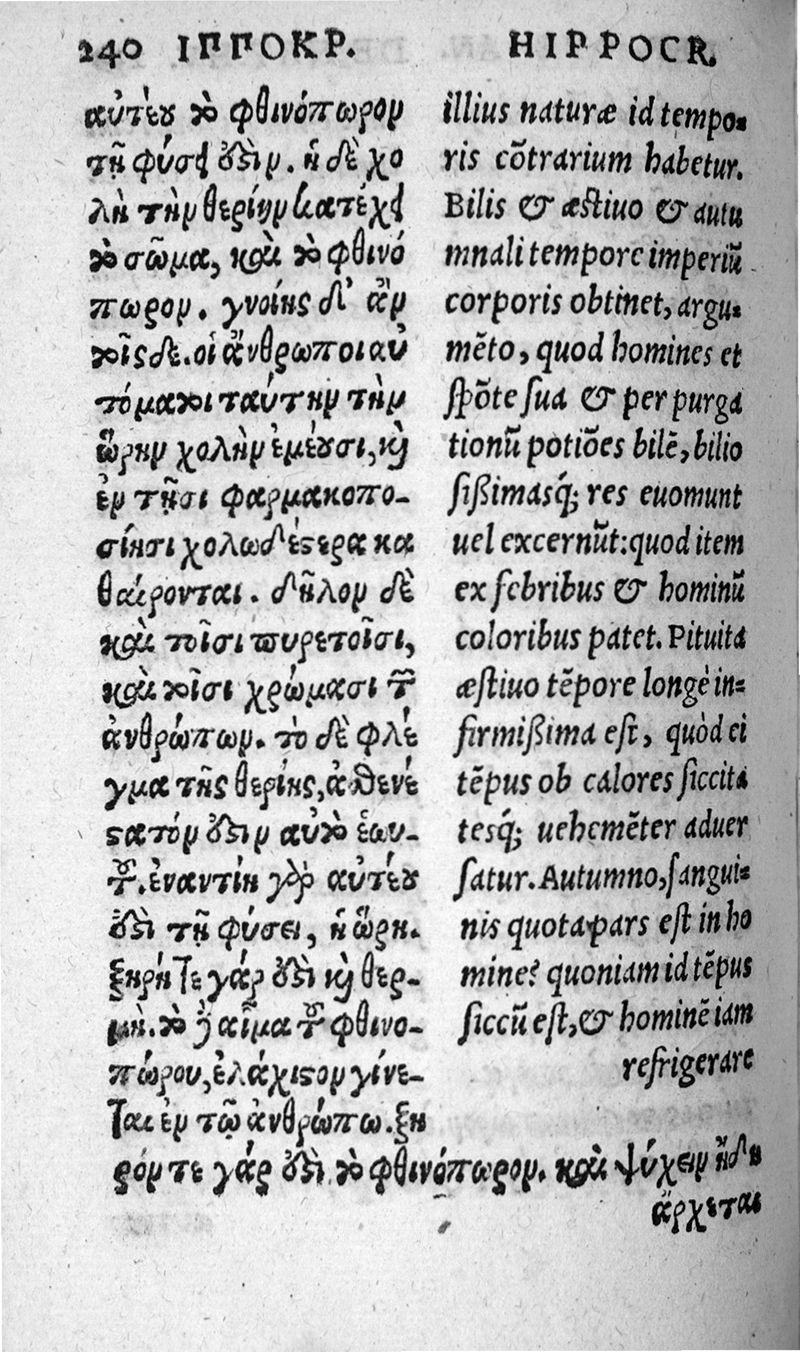 240 ΙΠΠΟΚΡ.
αὐτέου τὸ φθινόπωρον
τῇ φύσει ἐστὶν. ἡ δὲ χο
λὴ τὴν θερίην κατέχει
τὸ σῶμα, καὶ τὸ φθινό
πωρον. γνοίης δ' ἂν
τοῖς δε. οἱ ἄνθρωποι αὐ
τόματοι ταύτην τὴν
ὥρην χολὴν ἐμέουσι, καὶ
ἐν τῇσι φαρμακοπο-
σίησι χολωδέστερα κα
θαίρονται. δῆλον δὲ
καὶ τοῖσι πυρετοῖσι,
καὶ τοῖσι χρώμασι τῶν
ἀνθρώπων. τὸ δὲ φλέ
γμα τῆς θερίης, ἀσθενέ
στατόν ἐστιν αὐτὸ ἑωυ-
τοῦ. ἐναντίη γὰρ αὐτέου
ἐστὶ τῇ φύσει, ἡ ὥρη.
ξηρή τε γάρ ἐστὶ καὶ θερ-
μὴ. τὸ δὲ αἷμα τοῦ φθινο-
πώρου, ἐλάχιστον γίνε-
ται ἐν τῷ ἀνθρώπω. ξη
ρόν τε γάρ ἐστὶ τὸ φθινόπωρον. καὶ ψύχειν ἤδη
ἄρχεται
HIPPOCR.
illius naturæ id tempo-
ris cōtrarium habetur.
Bilis & æstiuo & autu
mnali tempore imperiū
corporis obtinet, argu-
mēto, quod homines et
spōte sua & per purga
tionū potiōes bilē, bilio
sißimasq́; res euomunt
uel excernūt: quod item
ex febribus & hominū
coloribus patet. Pituita
æstiuo tēpore longè in-
firmißima est, quòd ei
tēpus ob calores siccita
tesq́; uehemēter aduer
satur. Autumno, sangui-
nis quota pars est in ho
mine? quoniam id tēpus
siccū est, & hominē iam
refrigerare